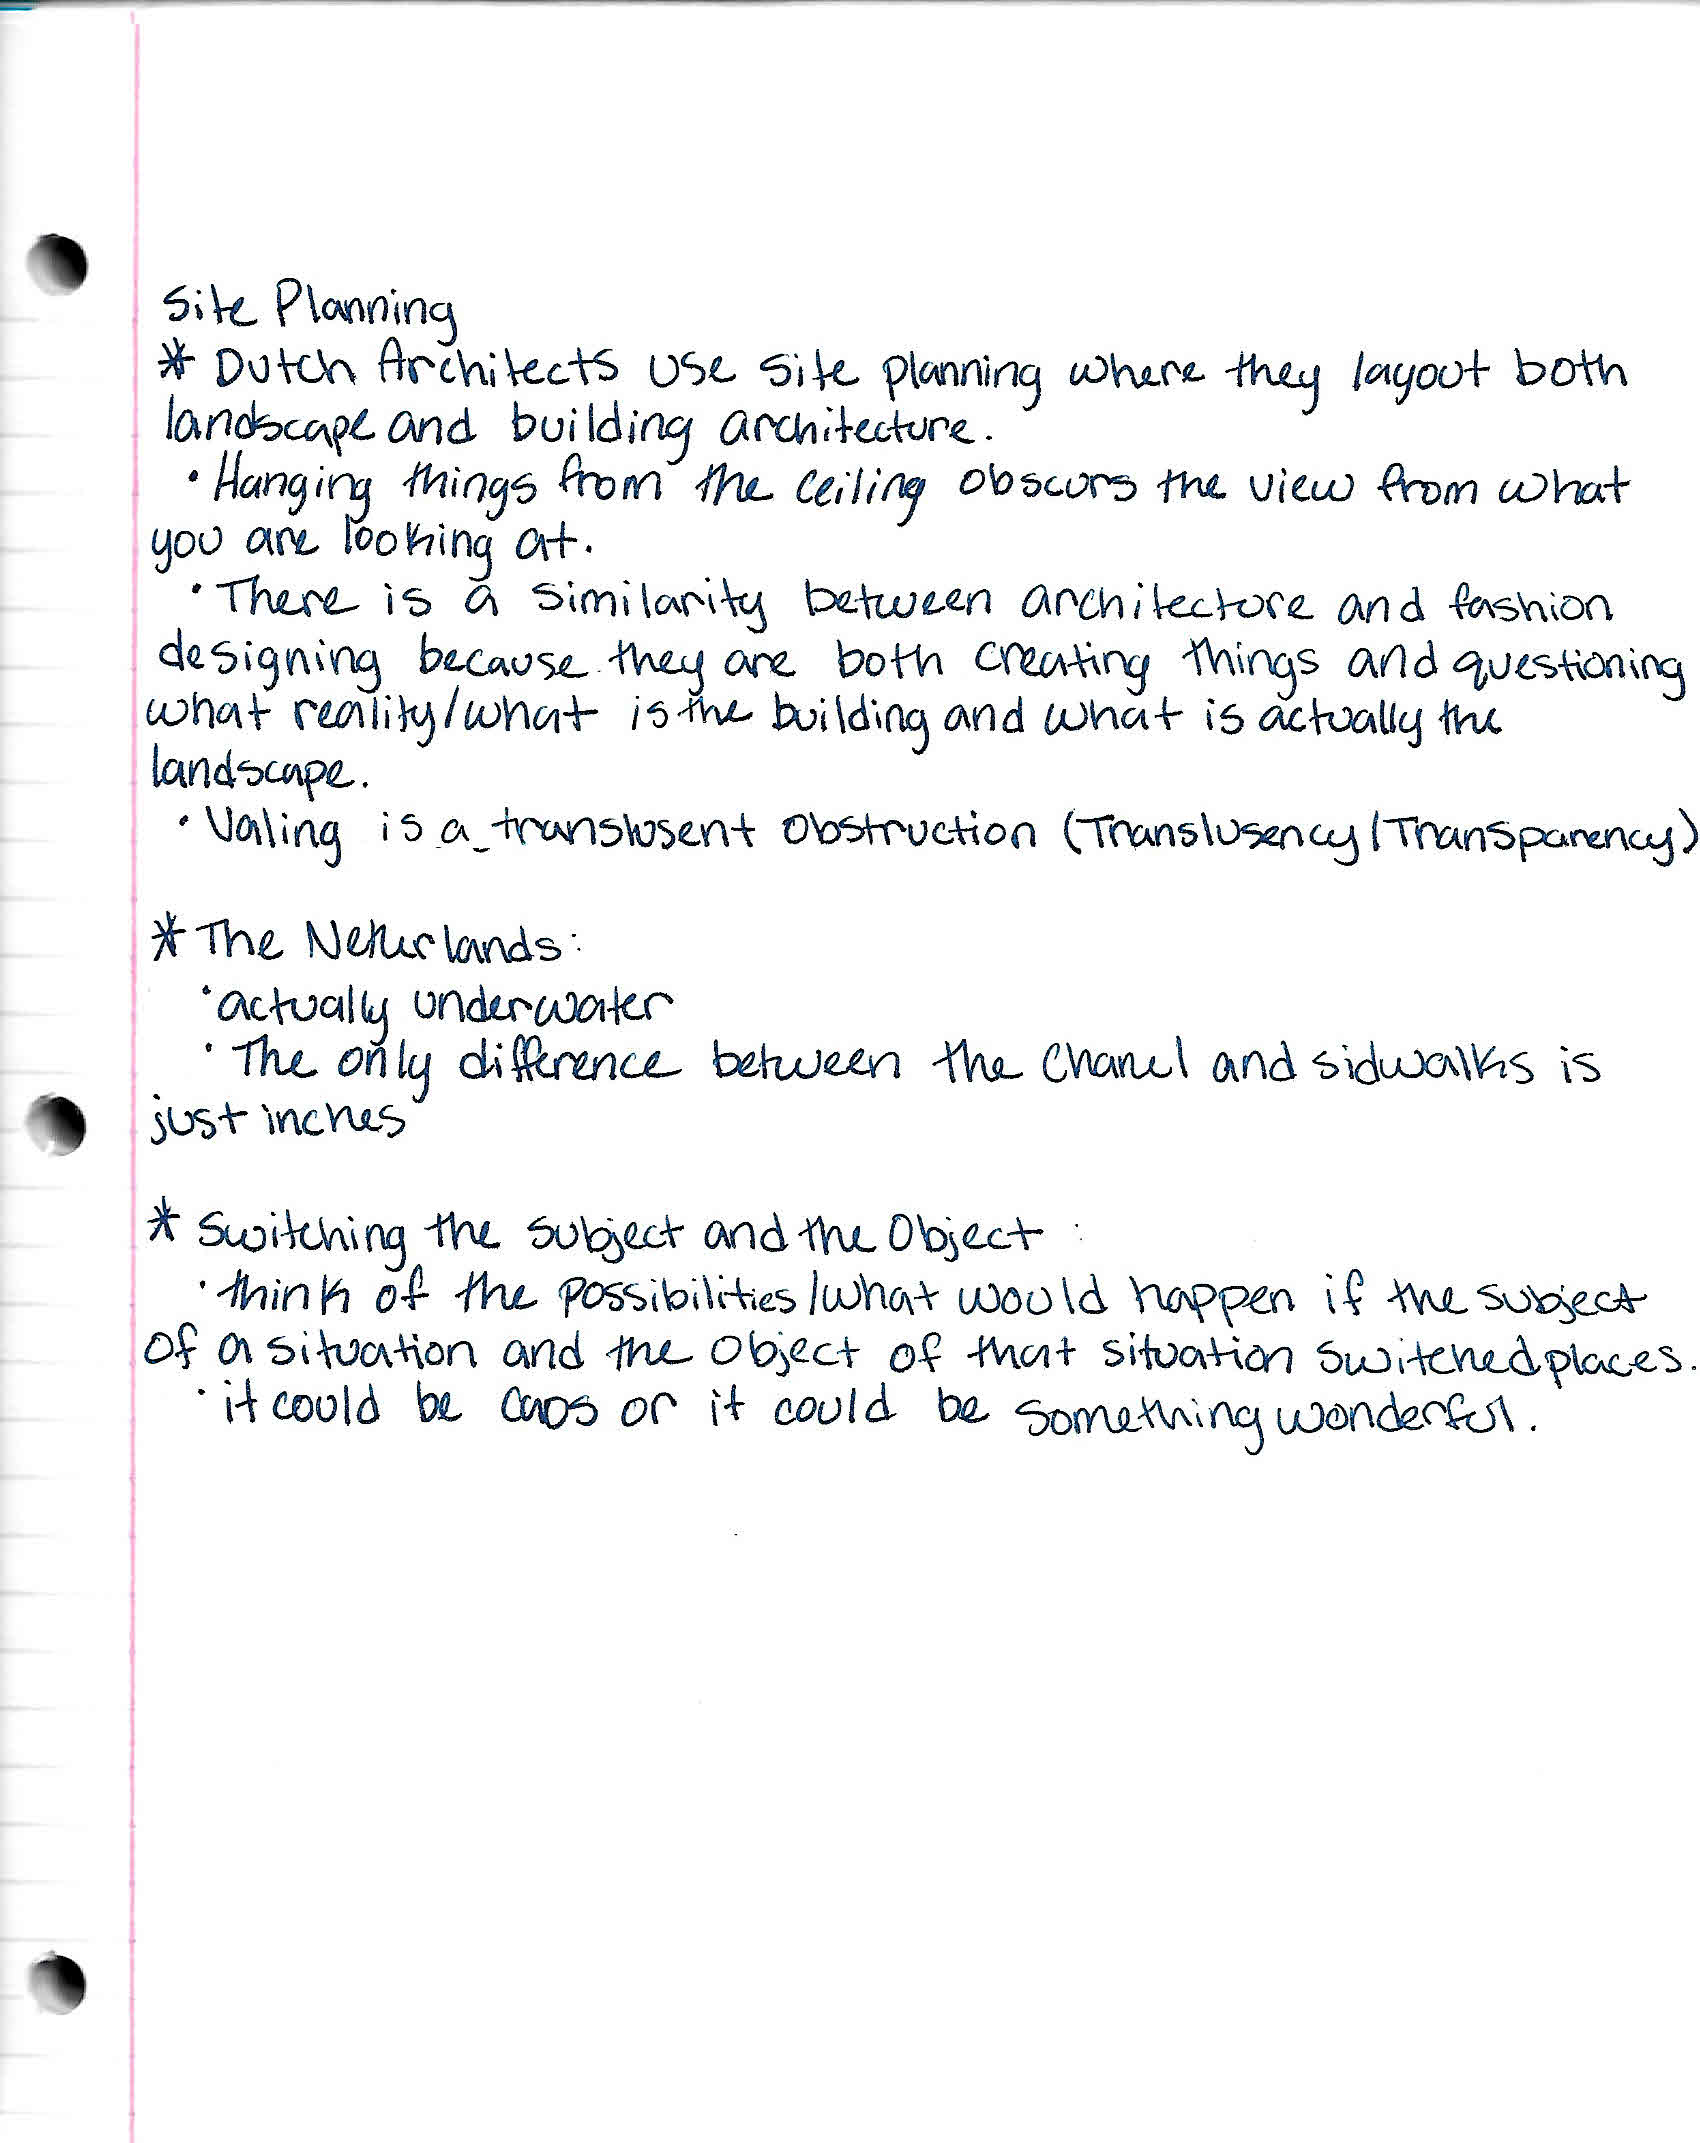 Site Planning
* Dutch Architects use site planning where they layout both
landscape and building architecture.
• Hanging things from the ceiling obscurs the view from what
you are looking at.
• There is a similarity between architecture and fashion
designing because they are both creating things and questioning
what reality/what is the building and what is actually the
landscape.
• Valing is a translusent obstruction (Translusency/Transparency)
* The Netherlands:
• actually underwater
• The only difference between the Chanel and sidwalks is
just inches
* Switching the subject and the Object:
• think of the possibilities/what would happen if the subject
of a situation and the object of that situation switched places.
• it could be caos or it could be something wonderful.